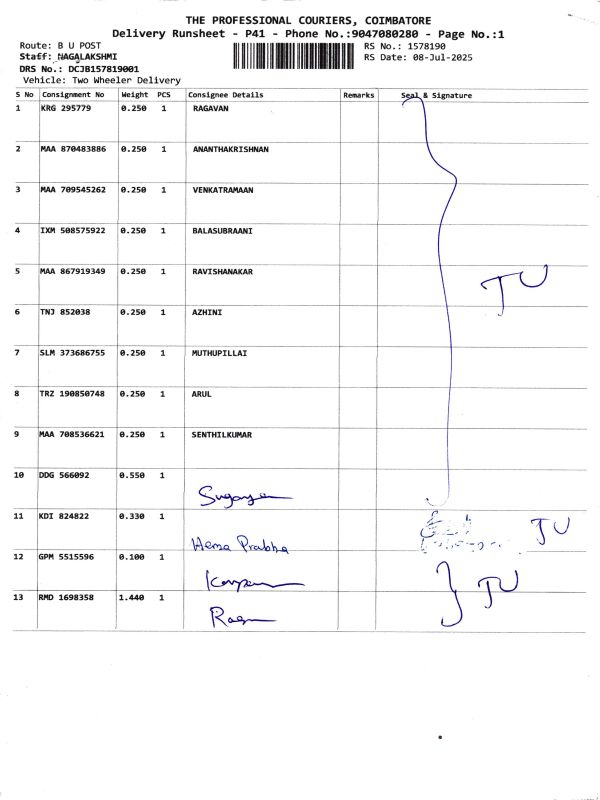 THE PROFESSIONAL COURIERS, COIMBATORE
Delivery Runsheet - P41 - Phone No.:9047080280 - Page No.:1
Route: B U POST RS No.: 1578190
Staff: NAGALAKSHMI RS Date: 08-Jul-2025
DRS No.: DCJB157819001
Vehicle: Two Wheeler Delivery
S No Consignment No Weight PCS Consignee Details Remarks Seal & Signature
1 KRG 295779 0.250 1 RAGAVAN
2 MAA 870483886 0.250 1 ANANTHAKRISHNAN
3 MAA 709545262 0.250 1 VENKATRAMAAN
4 IXM 508575922 0.250 1 BALASUBRAANI
5 MAA 867919349 0.250 1 RAVISHANAKAR
TU
6 TNJ 852038 0.250 1 AZHINI
7 SLM 373686755 0.250 1 MUTHUPILLAI
8 TRZ 190850748 0.250 1 ARUL
9 MAA 708536621 0.250 1 SENTHILKUMAR
10 DDG 566092 0.550 1
11 KDI 824822 0.330 1
TU
Hema Prabha
12 GPM 5515596 0.100 1
TU
13 RMD 1698358 1.440 1